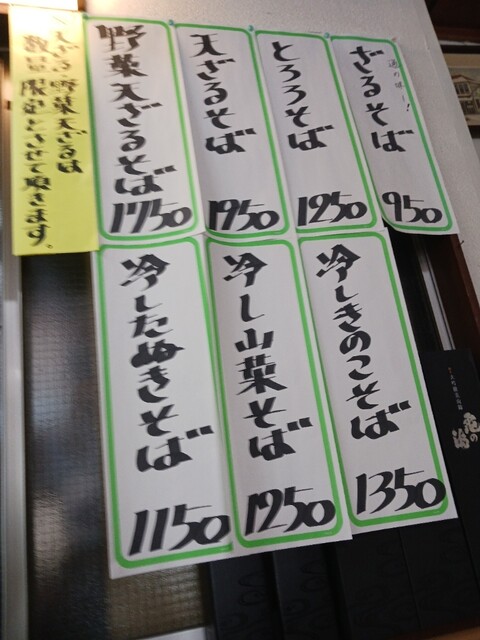 ざるそば
950
とろろそば
1250
天ざるそば
1950
野菜天ざるそば
1750
天ざる、野菜天ざるは
数量限定とさせて頂きます。
冷しきのこそば
1350
冷し山菜そば
1250
冷したぬきそば
1150
亀の